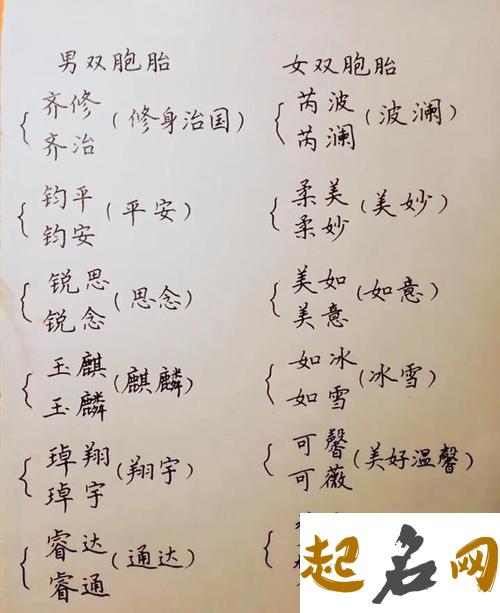 男双胞胎 女双胞胎
齐修
齐治
(修身治国)
芮波
芮澜
(波澜)
钧平
钧安
(平安)
柔美
柔妙
(美妙)
锐思
锐念
(思念)
美如
美意
(如意)
玉麒
玉麟
(麒麟)
如冰
如雪
(冰雪)
琸翔
琸宇
(翔宇)
可馨
可薇
(美好温馨)
睿达
睿通
(通达)
起名网